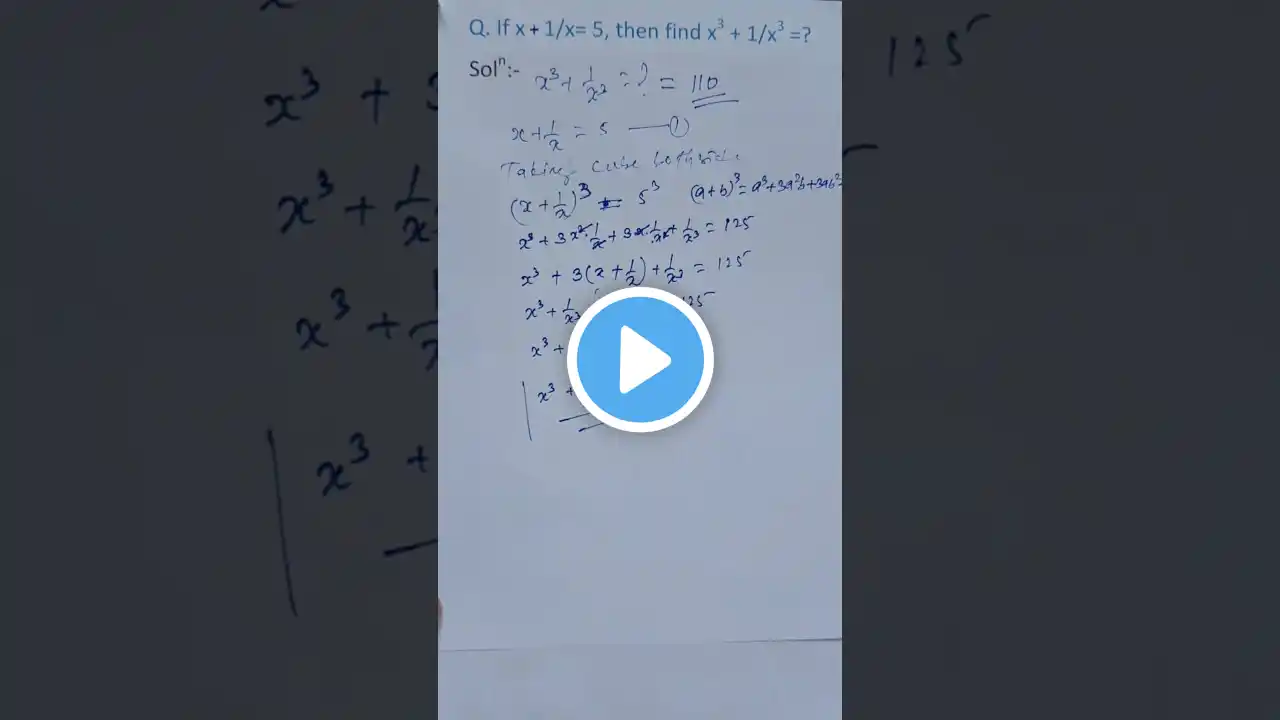 Q. If x + 1/x= 5, then find x³ + 1/x³ =?
Solⁿ:- x³ + 1/x³ = ? = 110
x + 1/x = 5 — ①
Taking cube both side
(x + 1/x)³ = 5³ (a+b)³ = a³+3a²b+3ab²
x³ + 3x²·1/x + 3x·1/x² + 1/x³ = 125
x³ + 3(x + 1/x) + 1/x³ = 125
x³ + 1/x³ 125
x³ +
x³ +